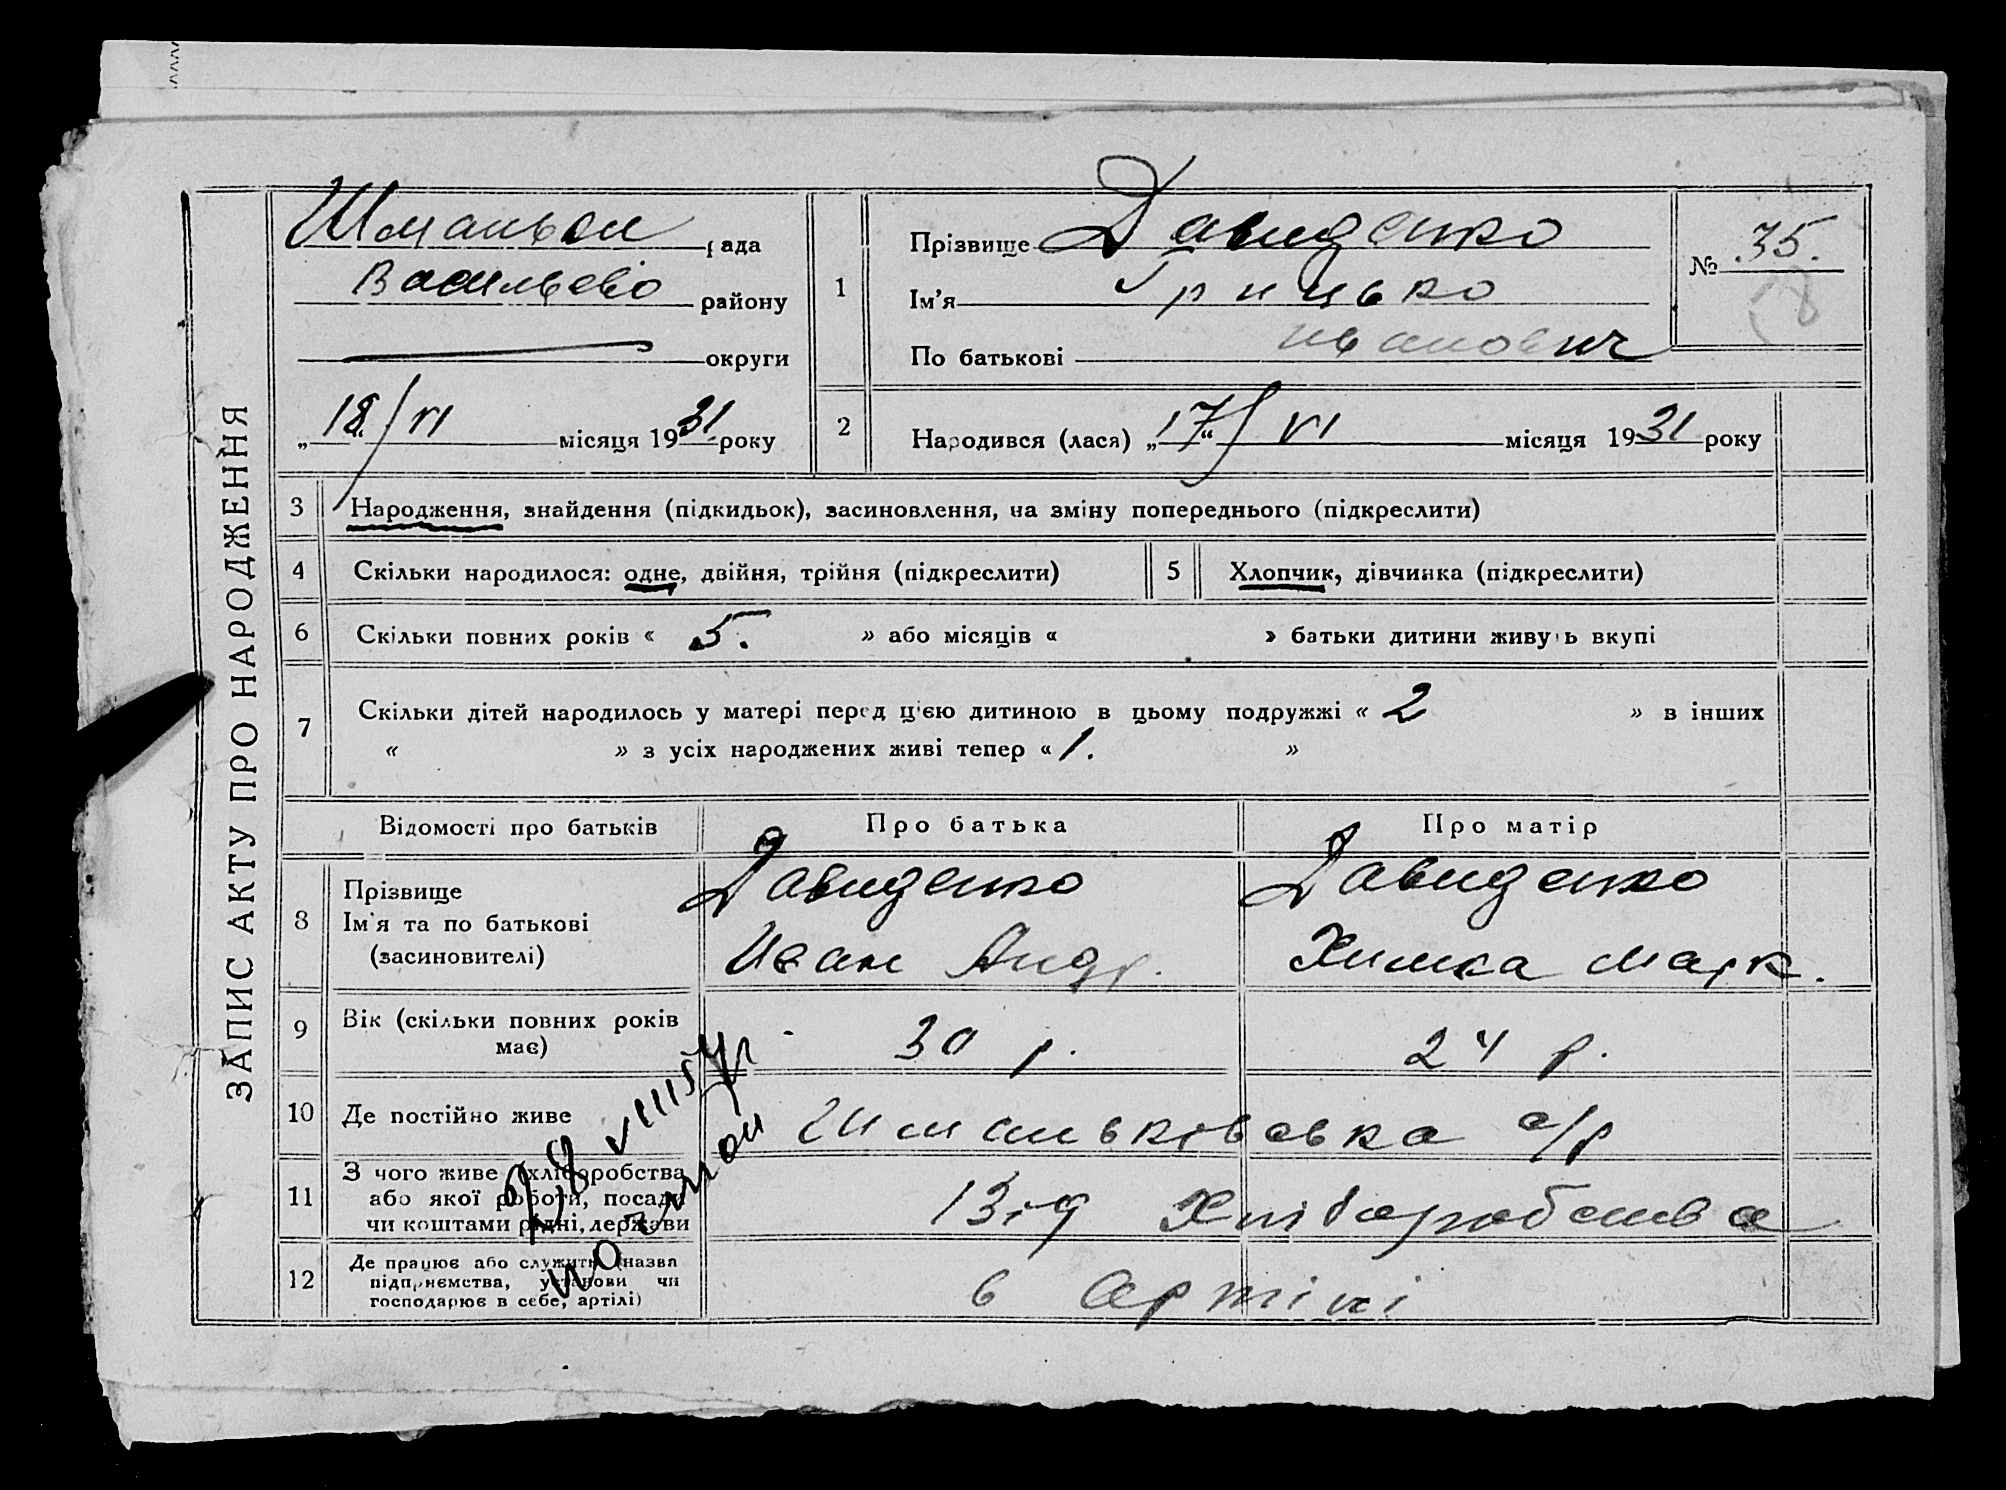 ЗАПИС АКТУ ПРО НАРОДЖЕННЯ
рада
району
округи
„18“ VI місяця 1931 року
1
Прізвище Давиденко
Ім’я Грицько
По батькові Иванович
№ 35.
2
Народився (лася) „17“ VI місяця 1931 року
3 Народження, знайдення (підкидьок), засиновлення, на зміну попереднього (підкреслити)
4 Скільки народилося: одне, двійня, трійня (підкреслити)
5 Хлопчик, дівчинка (підкреслити)
6 Скільки повних років « 5. » або місяців « » батьки дитини живуть вкупі
7 Скільки дітей народилось у матері перед цією дитиною в цьому подружжі « 2 » в інших
« » з усіх народжених живі тепер « 1. »
Відомості про батьків Про батька Про матір
8 Прізвище
Ім’я та по батькові
(засиновителі)
Давиденко
Иван Андр.
Давиденко
Химка Марк.
9 Вік (скільки повних років
має)
30 р. 24 р.
10 Де постійно живе Шманьківська с/р
11 З чого живе (хліборобства
або якої роботи, посади
чи коштами рідні, держави
Від Хліборобства
12 Де працює або служить (назва
підприємства, установи чи
господарює в себе, артілі)
в Артілі